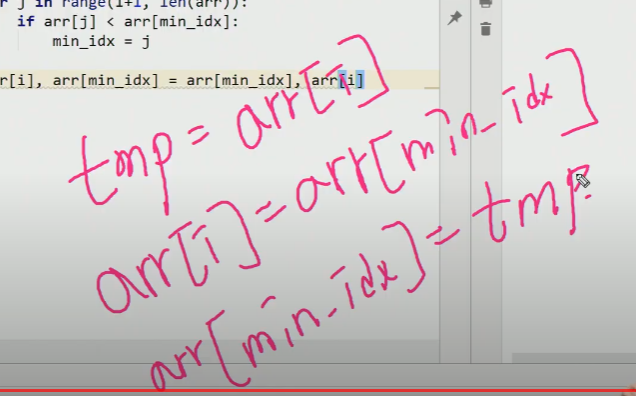 r j in range(i+1, len(arr)):
if arr[j] < arr[min_idx]:
min_idx = j
r[i], arr[min_idx] = arr[min_idx], arr[i]
tmp = arr[i]
arr[i] = arr[min_idx]
arr[min_idx] = tmp